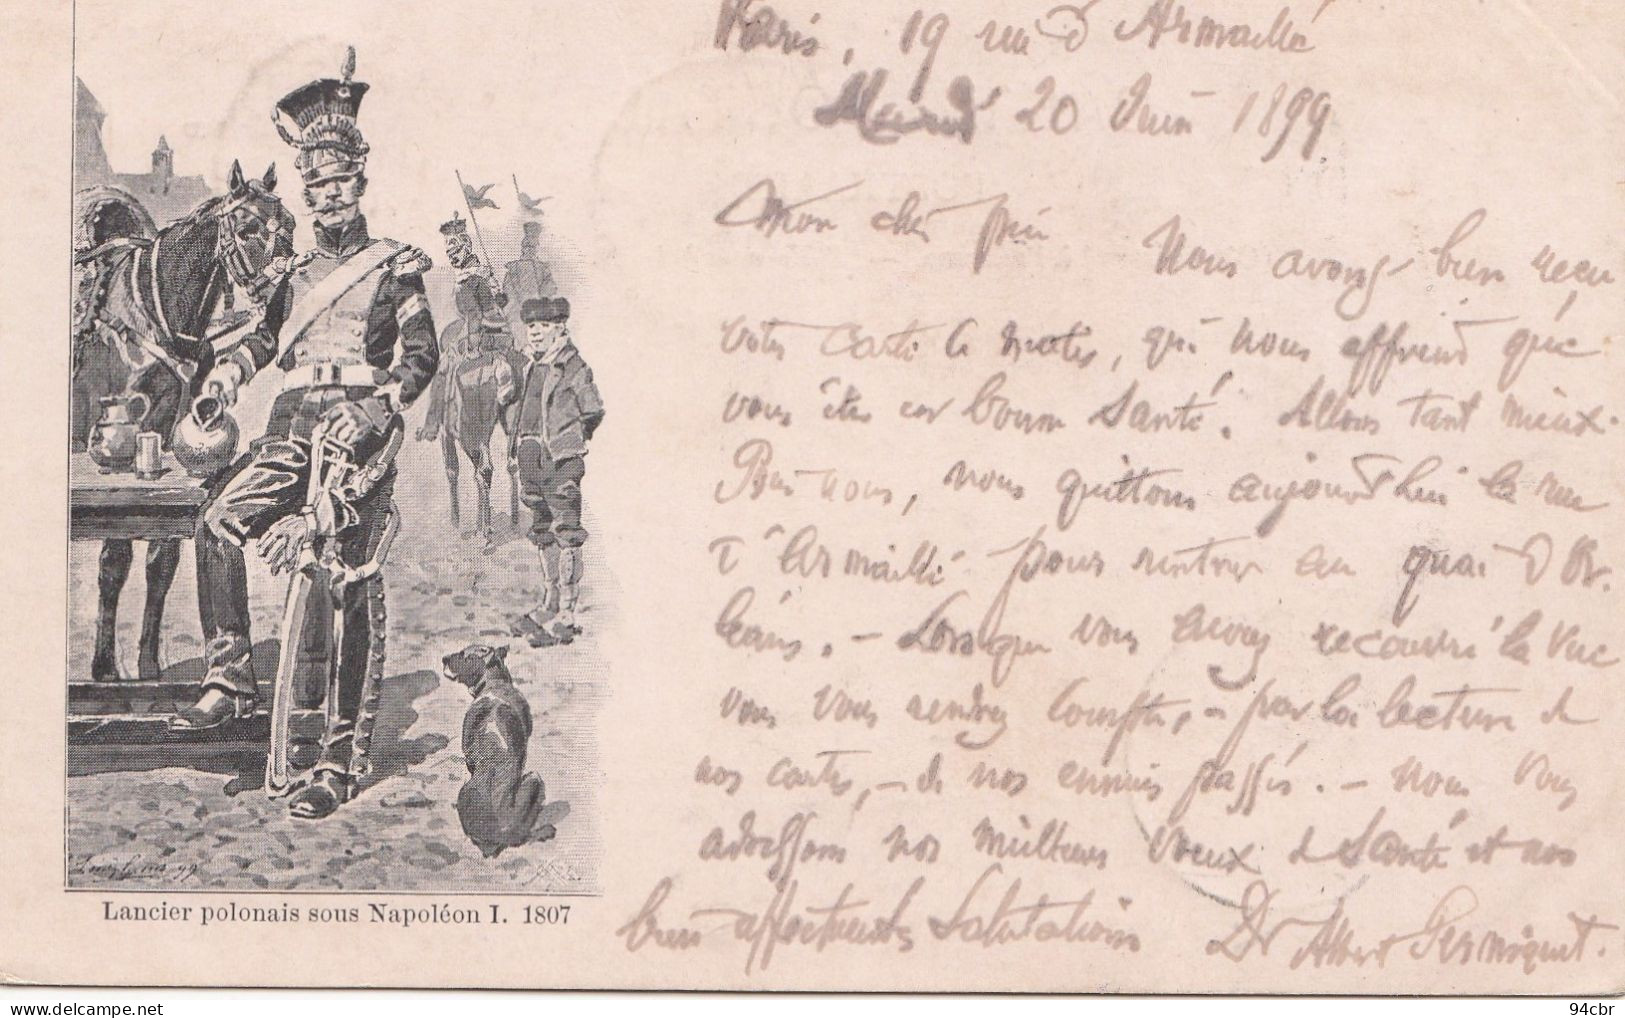 Paris, 19 rue d'Armaillé
Mardi 20 Juin 1899
Mon cher père Nous avons bien reçu
votre carte ce matin, qui nous apprend que
vous êtes en bonne santé. Allons tant mieux.
Pour nous, nous quittons aujourd'hui la rue
d'Armaillé pour rentrer au quai d'Or-
léans. – Lorsque vous aurez recouvré la vue
vous vous rendrez compte, – par la lecture de
nos cartes, – de nos ennuis passés. – Nous vous
adressons nos meilleurs voeux de santé et nos
bien affectueuses salutations Dr Albert
Lancier polonais sous Napoléon I. 1807
94cbr